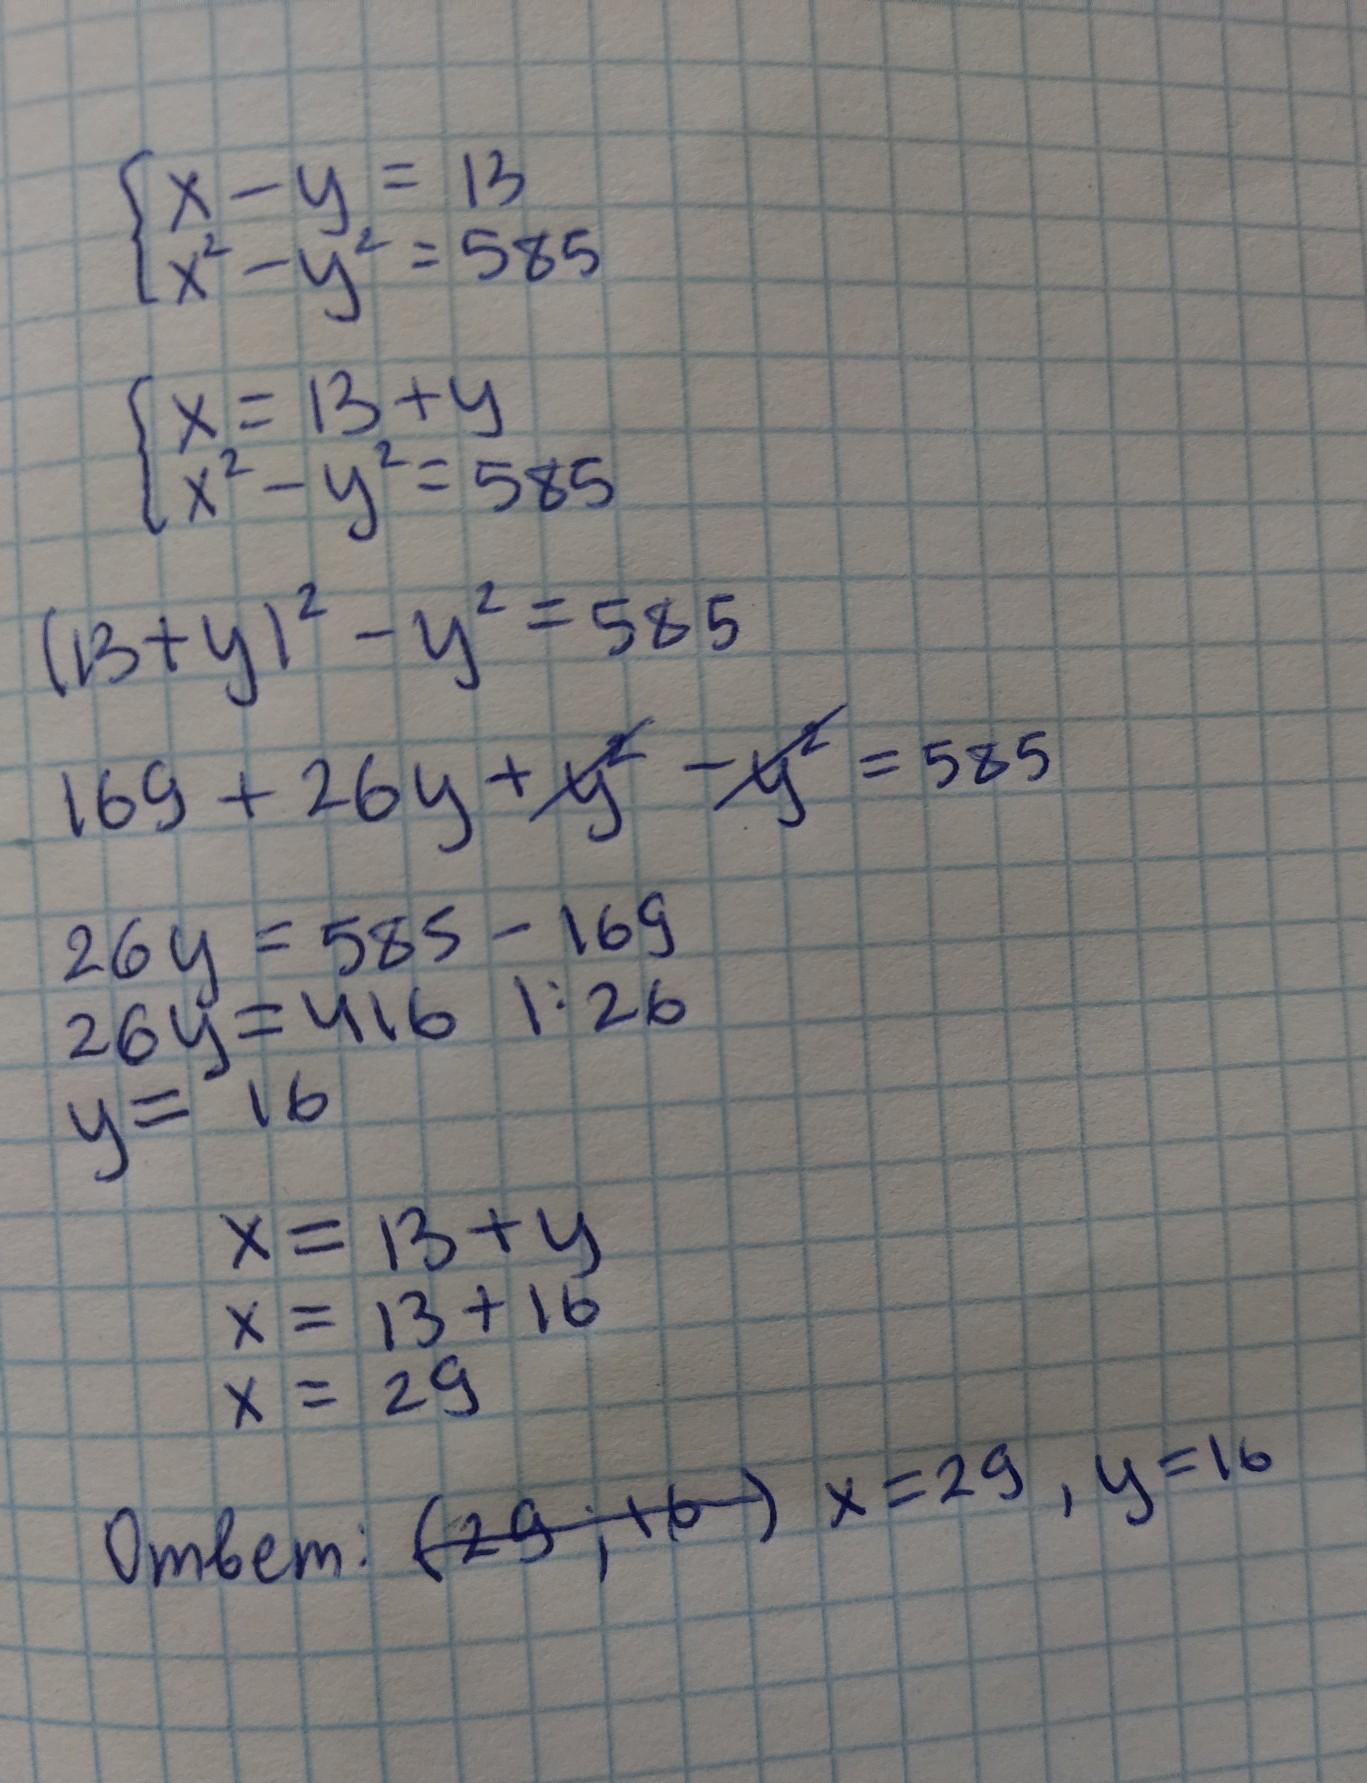 { x - y = 13
x² - y² = 585
{ x = 13 + y
x² - y² = 585
(13 + y)² - y² = 585
169 + 26y + y² - y² = 585
26y = 585 - 169
26y = 416 |:26
y = 16
x = 13 + y
x = 13 + 16
x = 29
Ответ: (29 ; 16) x = 29, y = 16